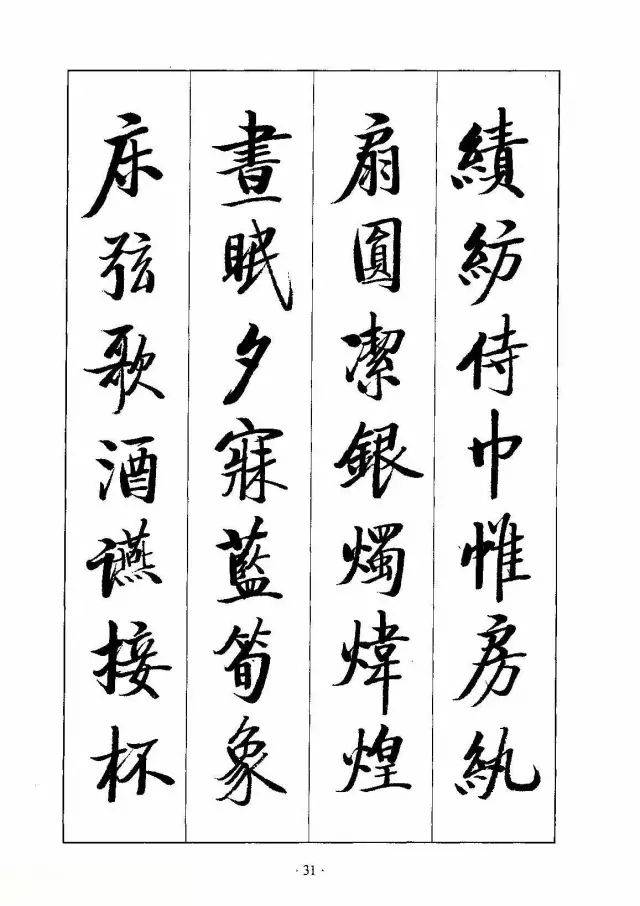 績紡侍巾帷房紈
扇圓潔銀燭煒煌
晝眠夕寐藍筍象
床弦歌酒讌接杯
· 31 ·